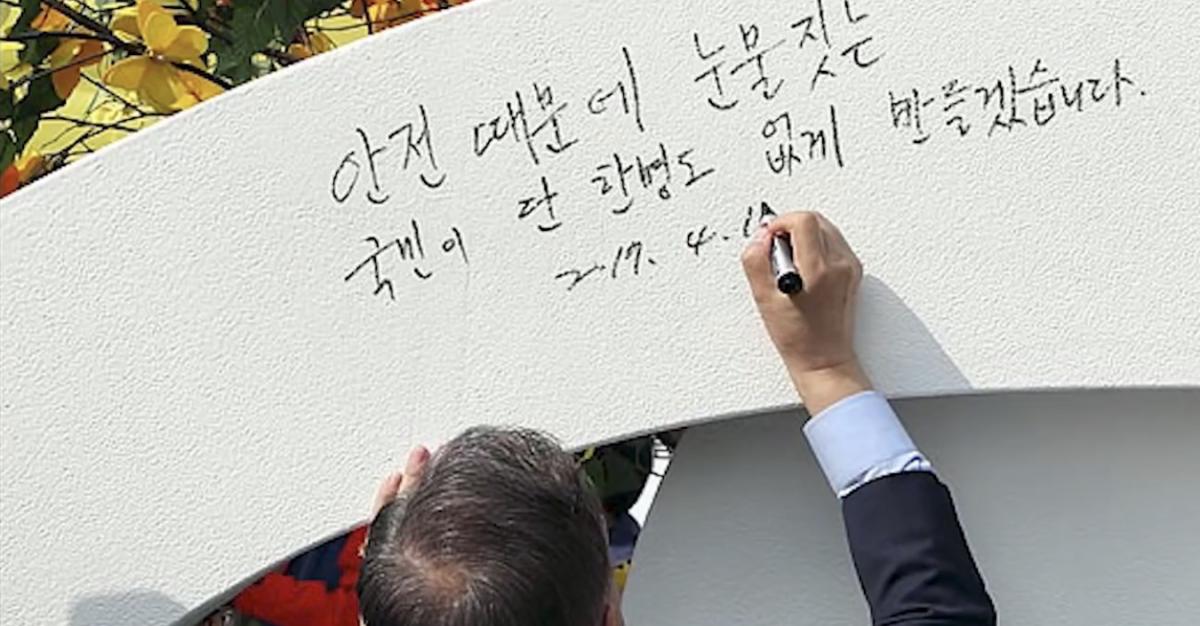 안전 때문에 눈물짓는
국민이 단 한명도 없게 만들겠습니다.
2017. 4.